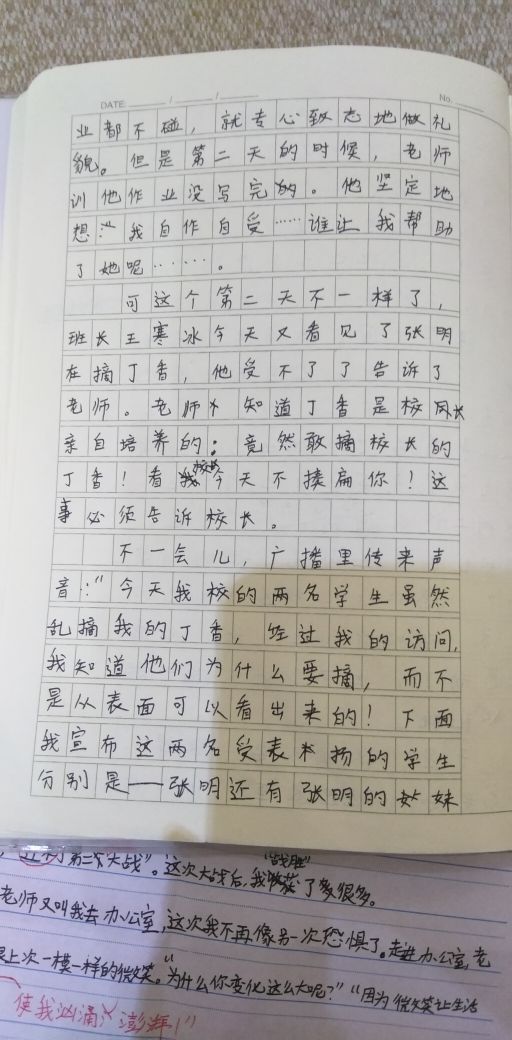 DATE / / No.
业都不碰，就专心致志地做礼
貌。但是第二天的时候，老师
训他作业没写完的。他坚定地
想："我自作自受……谁让我帮助
了她呢……。
可这个第二天不一样了，
班长王寒冰今天又看见了张明
在摘丁香，他受不了了告诉了
老师。老师知道丁香是校长
亲自培养的：竟然敢摘校长的
丁香！看校长今天不揍扁你！这
事必须告诉校长。
不一会儿，广播里传来声
音："今天我校的两名学生虽然
乱摘我的丁香，经过我的访问，
我知道他们为什么要摘，而不
是从表面可以看出来的！下面
我宣布这两名受表扬的学生
分别是——张明还有张明的妹妹
第二次大战"。这次大战后，我获了多很多。
"战胜"
老师又叫我去办公室，这次我不再像另一次恐惧了。走进办公室，老
上次一模一样的微笑。"为什么你变化这么大呢？""因为微笑让生活
使我汹涌澎湃！"